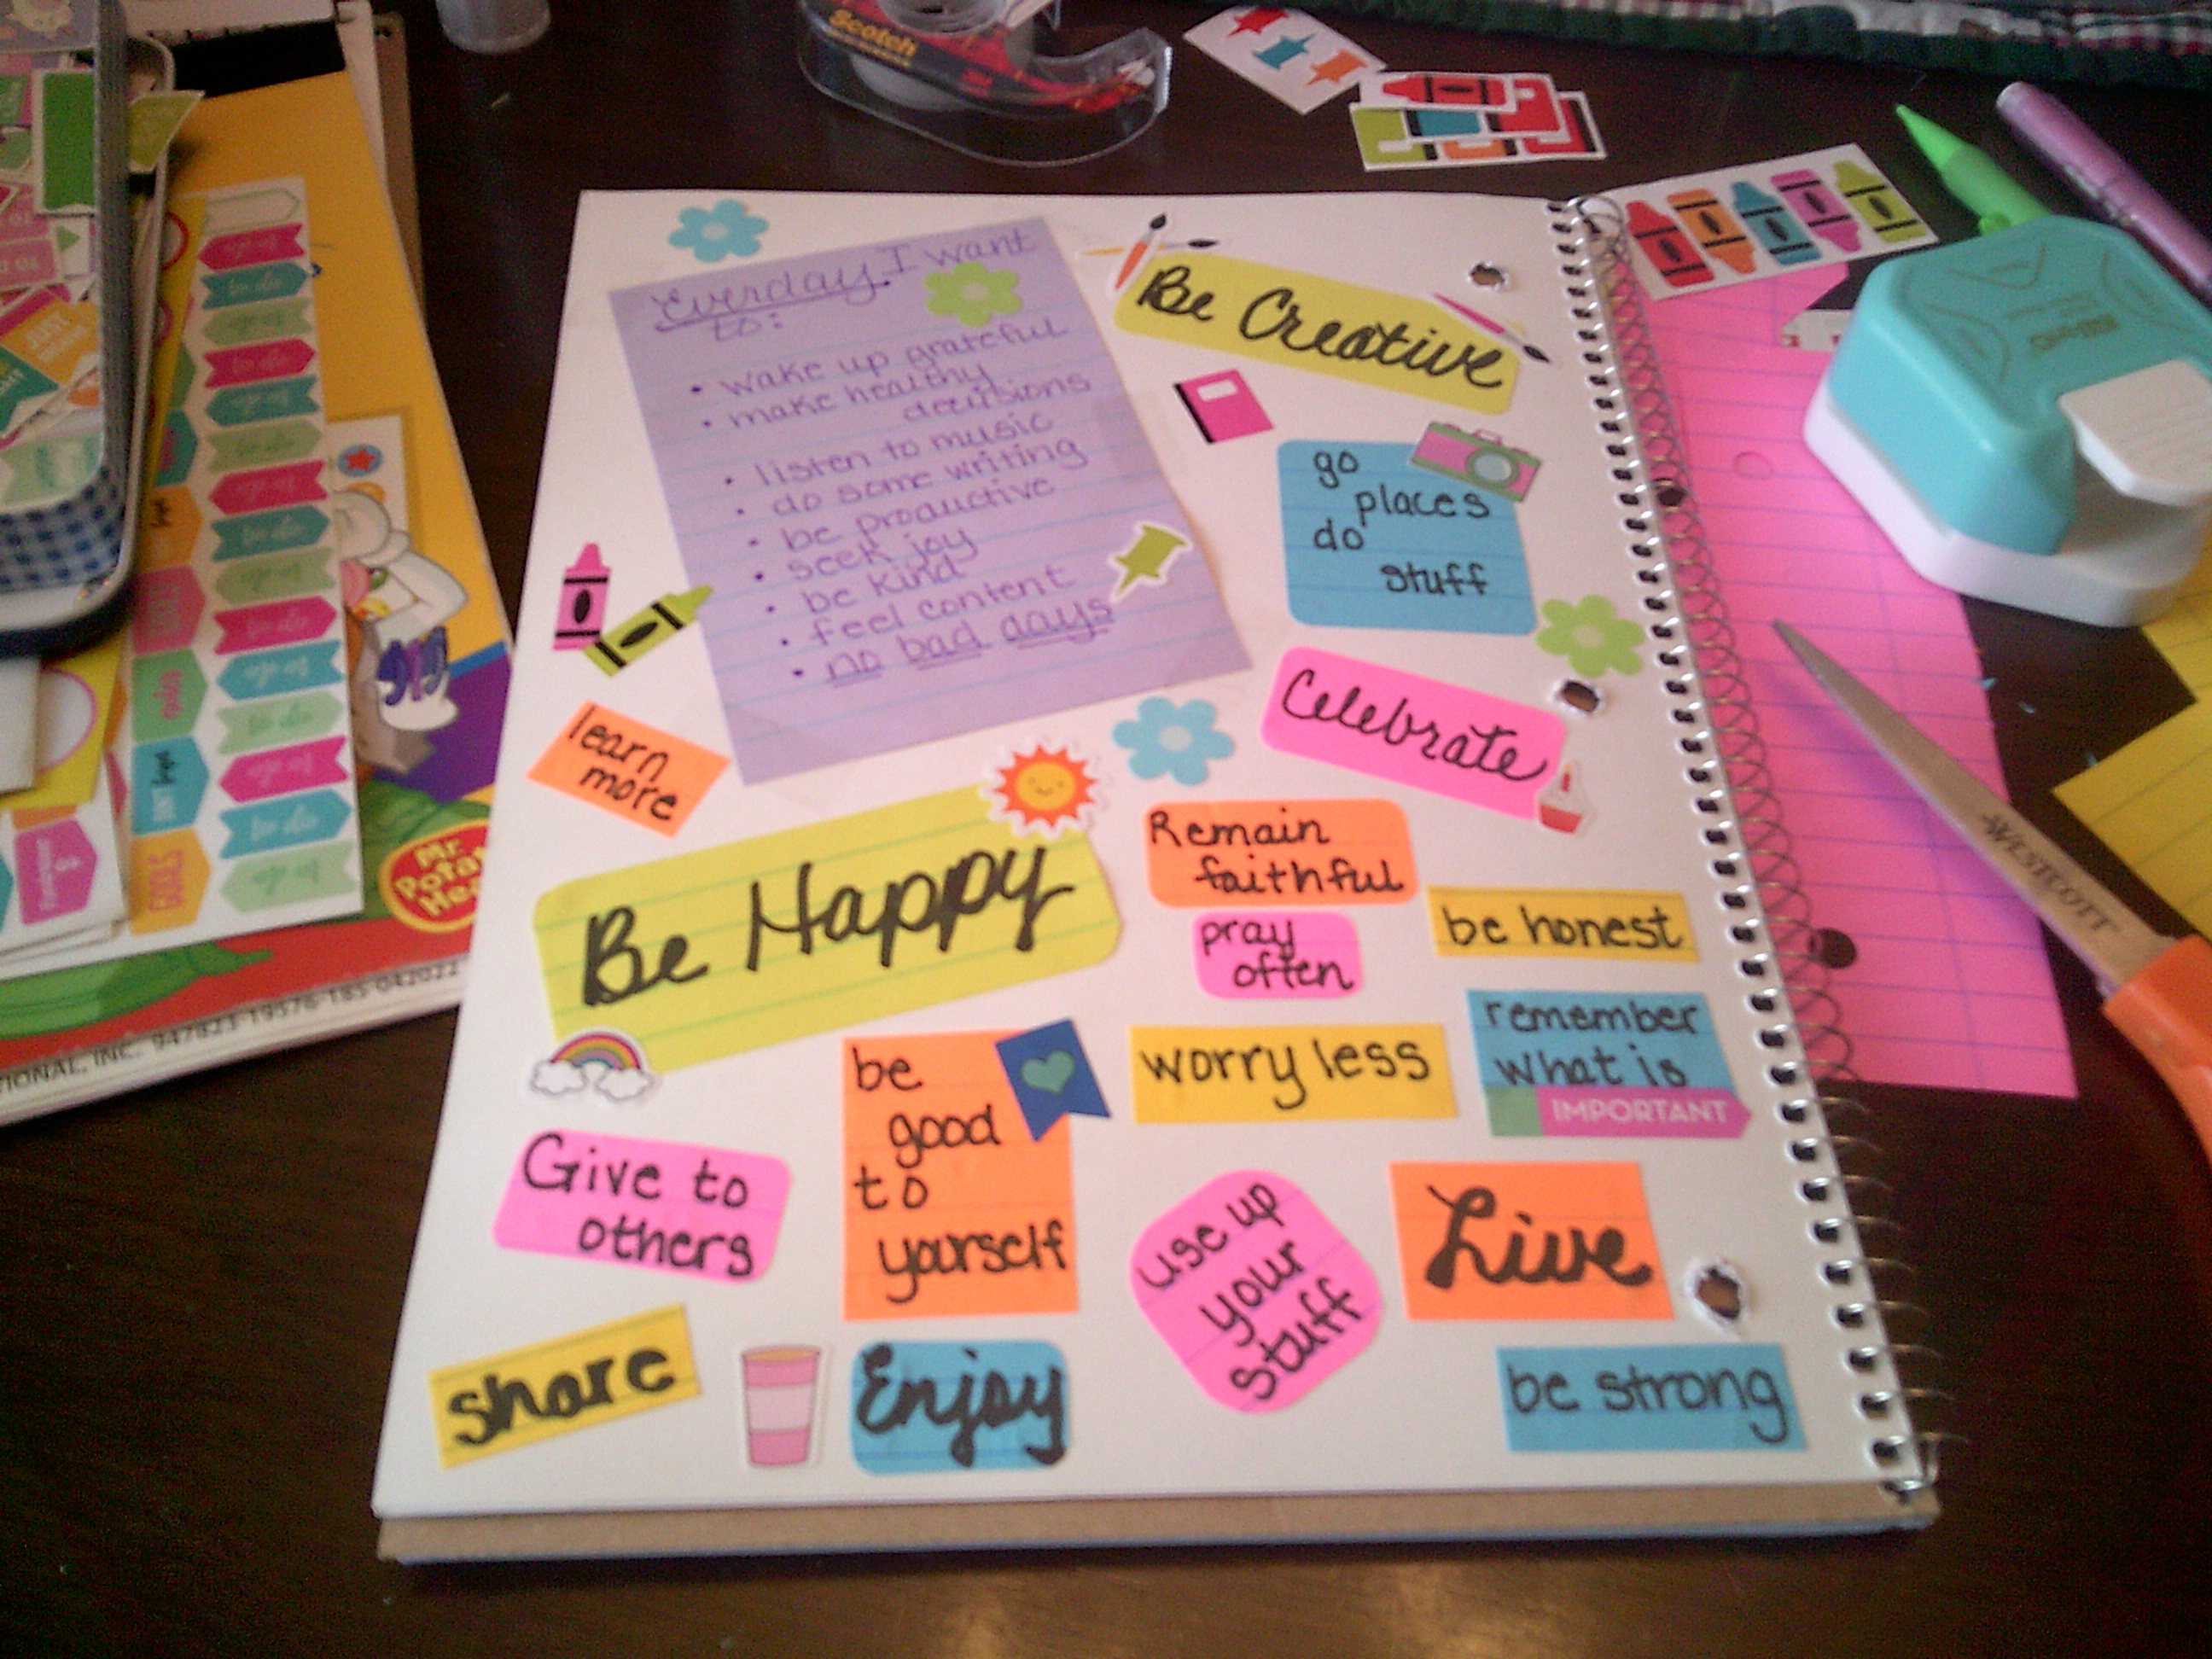 Scotch
Everday I want
to:
• wake up grateful
• make healthy
decisions
• listen to music
• do some writing
• be productive
• seek joy
• be kind
• feel content
• no bad days
Be Creative
go
places
do
stuff
Celebrate
learn
more
Be Happy
Remain
faithful
pray
often
be honest
be
good
to
yourself
worry less
remember
what is
IMPORTANT
Give to
others
use up
your
stuff
Live
share
Enjoy
be strong
WESTCOTT
Mr.
GOALS
to do
TIONAL, INC. 947823-19576-185-042022